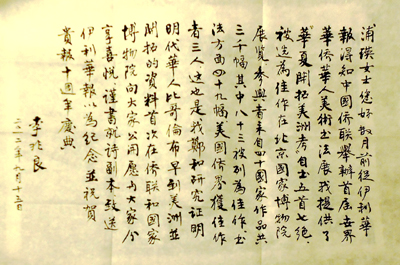 浦瑛女士您好数月前從伊利華
報得知中國僑联舉辦首届世界
華侨華人美術書法展我提供了
華夏開拓美洲考自士五首七絶
被选為佳作在北京國家博物院
展览参與者来自四十國家作品共
三千幅其中八十三被列為佳作書
法方面四十九幅美國僑界獲佳作
者三人这也是我鄭和研究証明
明代華人比哥倫布早到美洲並
開拓的資料首次在侨联和國家
博物院向大家公開愿与大家分
享喜悦谨書就詩副本致送
伊利華報以為紀念並祝賀
貴報十週年慶典
李兆良
二〇一二年九月十三日